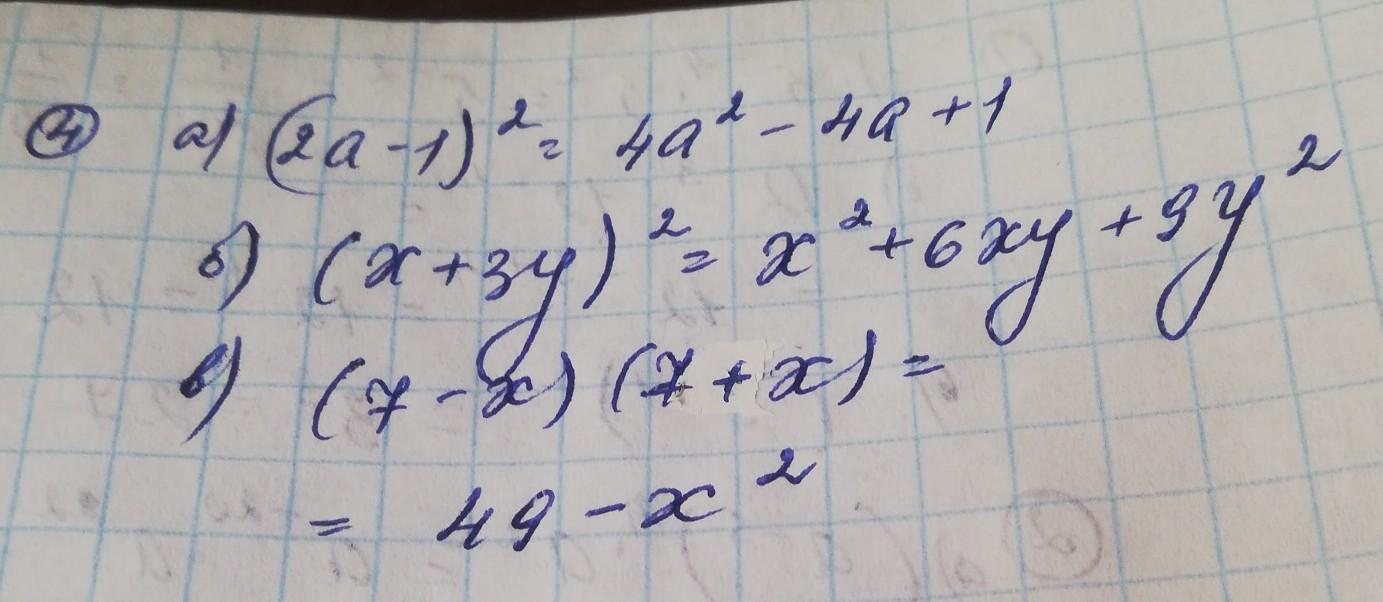 ④ а) (2a-1)² = 4a² - 4a + 1
б) (x+3y)² = x² + 6xy + 9y²
в) (7-x) (7+x) =
= 49 - x²